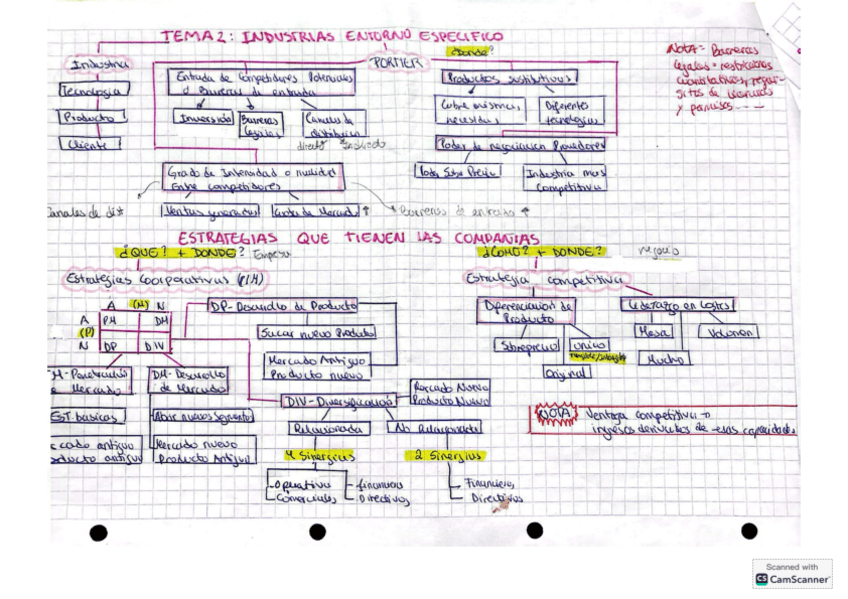 TEMA 2: INDUSTRIAS ENTORNO ESPECIFICO
Industria
Tecnología
Producto
Cliente
PORTIER
¿Donde?
Entrada de Competidores Potenciales
o Barreras de entrada
Inversión
Barreras
Legales
Canales de
distribución
directo
Productos sustitutivos
Cubre mismas
necesidas
Diferentes
tecnologías
NOTA = Barreras
legales = restricciones
cuantitativos, requi-
sitos de licencias
y permisos - - -
Poder de negociacion Proveedores
Poder Sobre Precio
Industria mas
Competitiva
Grado de Intensidad o rivalidad
Entre competidores
Canales de dist
Ventas generadas
Cuota de Mercado ↑
Barreras de entrada ↑
ESTRATEGIAS QUE TIENEN LAS COMPAÑIAS
¿QUE? + DONDE? Empresa
¿COMO? + DONDE? negocio
Estrategias Coorporativas
Estrategia competitiva
A (M) N
A PM DM
(P)
N DP DIV
DP- Desarrollo de Producto
Sacar nuevo Producto
Mercado Antiguo
Producto nuevo
Diferenciacion de
Producto
Sobreprecio
único
Original
Liderazgo en Costes
Masa
Volumen
Mucho
M- Penetración
Mercado
EST. basicas
Mercado antiguo
Producto antiguo
DM- Desarrollo
de Mercado
Abrir nuevos segmentos
Mercado nuevo
Producto Antiguo
DIV- Diversificación
Mercado Nuevo
Producto Nuevo
Relacionada
No Relacionada
4 Sinergias
2 Sinergias
Operativa
Comerciales
financiera
Directivos
Financieras
Directivas
NOTA Ventaja competitiva →
ingresos derivados de esas capacidades
Scanned with
CS CamScanner